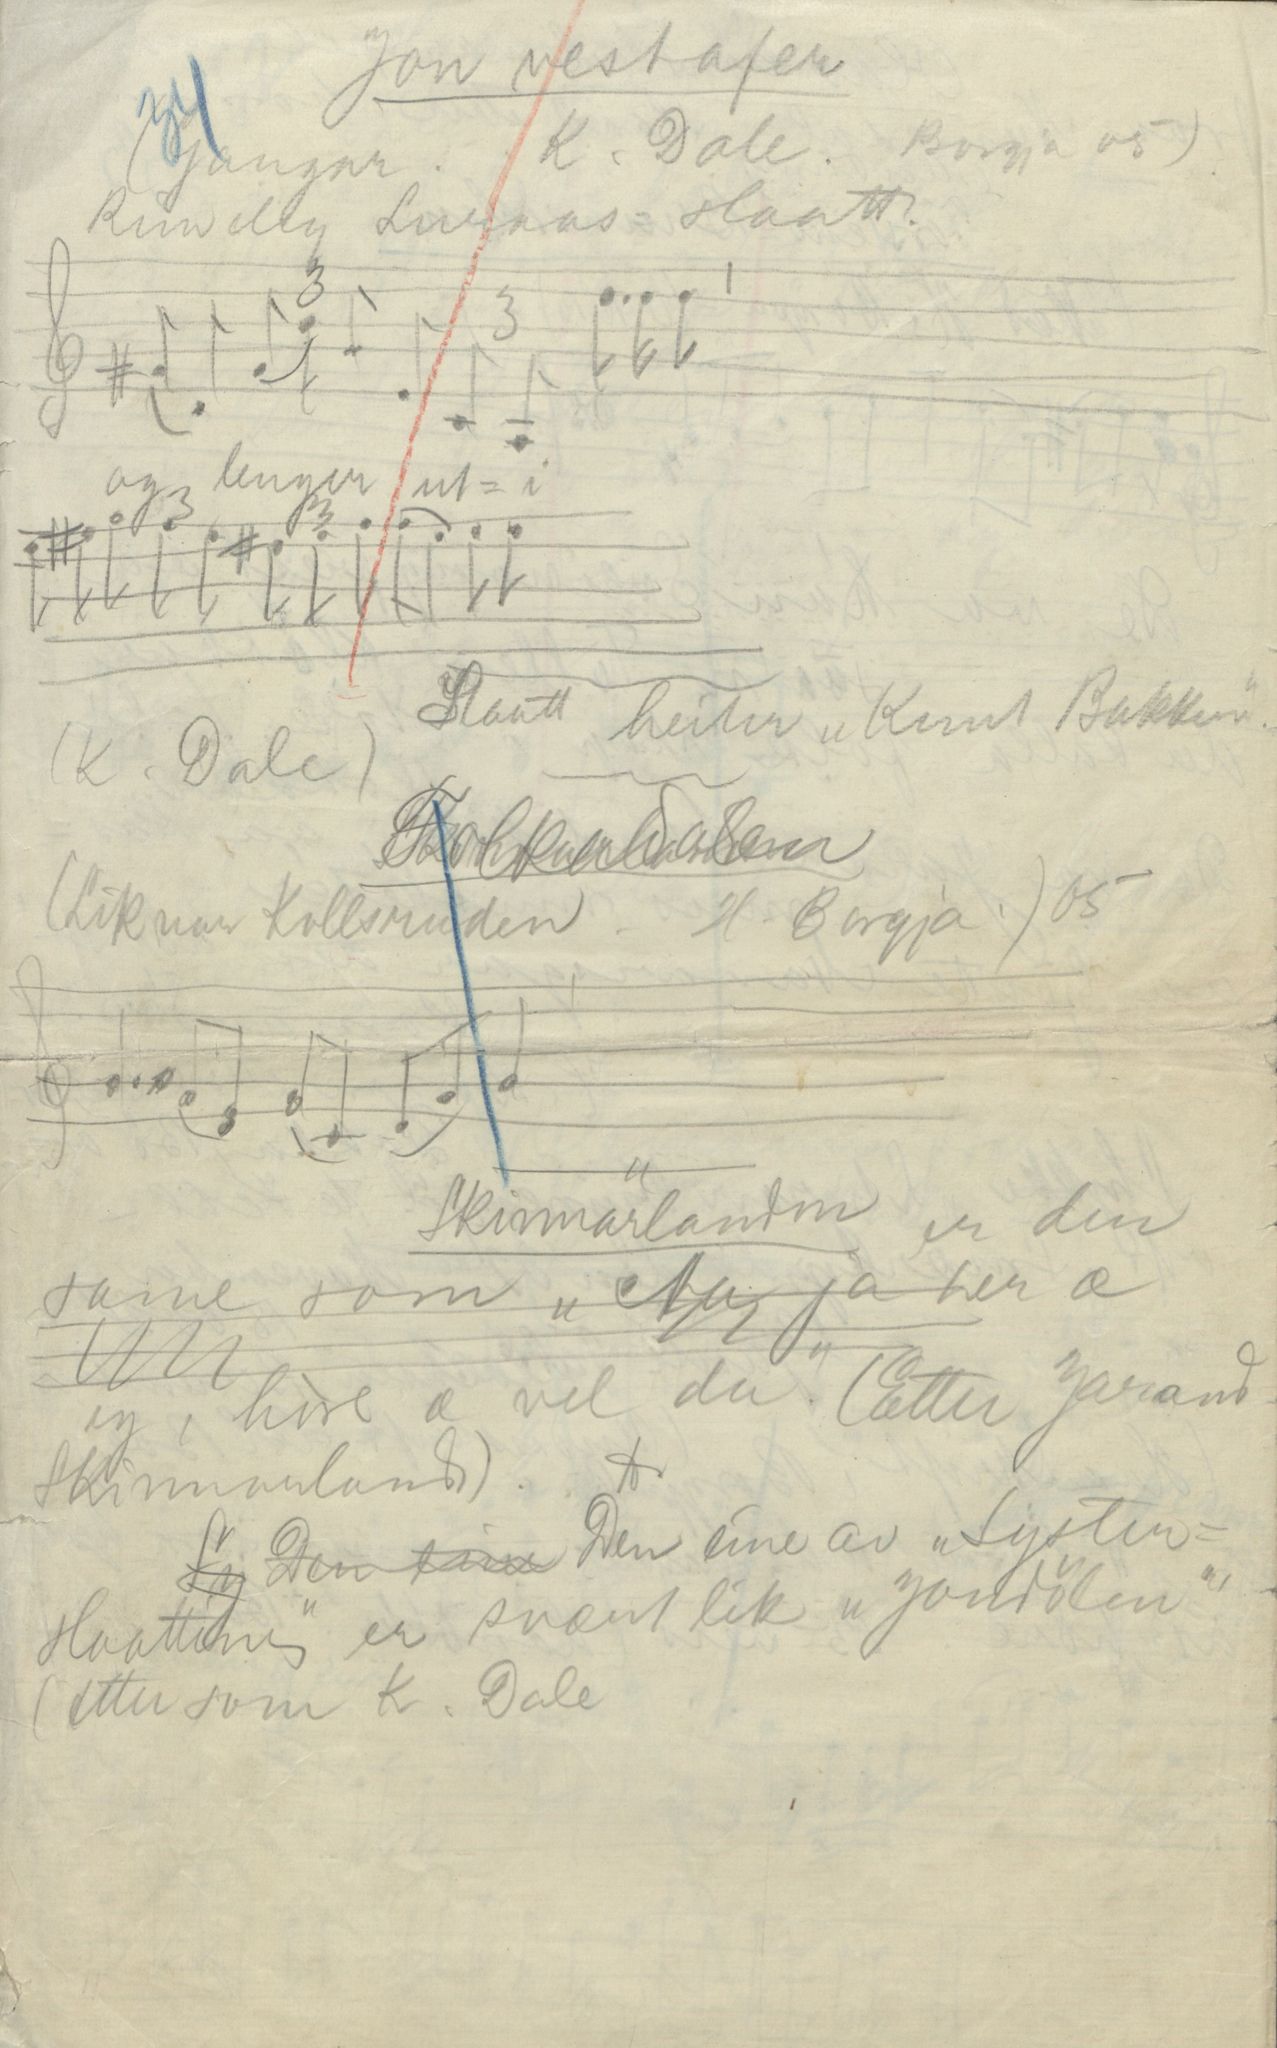 Jon vestafer
34
(Gangar. K. Dale. Borgja 05)
Luraas-slaatt.
3
3
og lenger ut=i
3
3
Slaatt heiter „Knut Bakken“.
(K. Dale)
(Lik nar Kollsruden. H. Borgja.) 05
Skinnarlanden er den
same som „ Nu ja her æ
eg, höre æ vel du“. (Etter Jarand
Skinnarland).
Sy Den eine Den eine av „Syster=
slaattine“ er svært lik „Jondölen“,
(etter som K. Dale